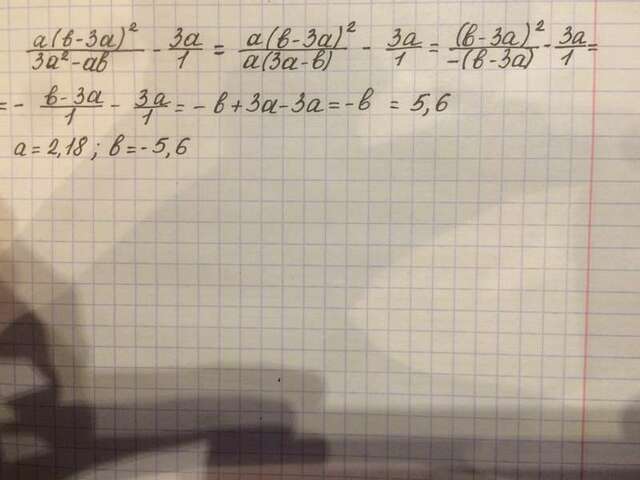 a(в-3a)²/3a²-aв - 3a/1 = a(в-3a)²/a(3a-в) - 3a/1 = (в-3a)²/-(в-3a) - 3a/1 =
= - в-3a/1 - 3a/1 = - в + 3a - 3a = -в = 5,6
a = 2,18 ; в = - 5,6